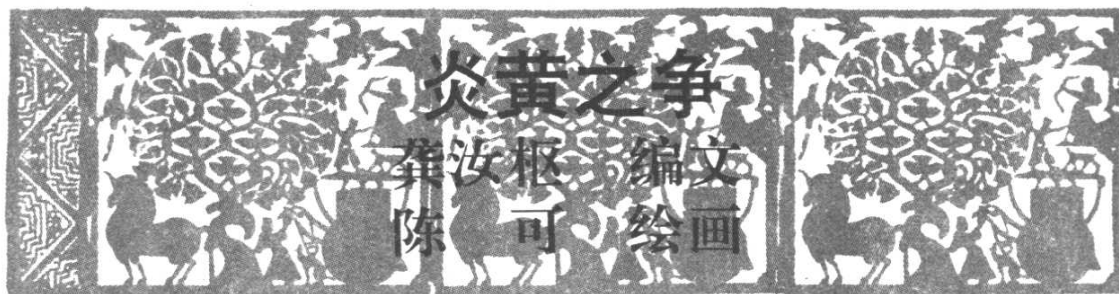 炎黄之争
龚汝枢 编文
陈可 绘画